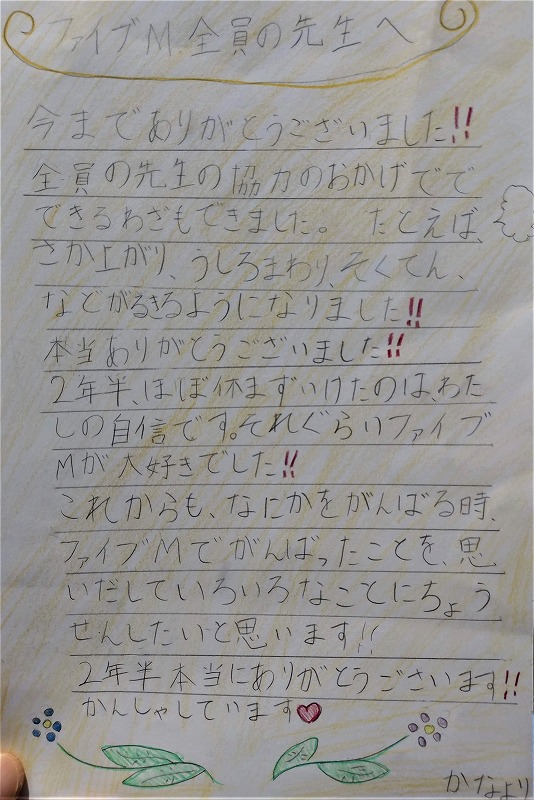 ファイブM 全員の先生へ
今までありがとうございました!!
全員の先生の協力のおかげでで
できるわざもできました。 たとえば、
さか上がり、うしろまわり、そくてん、
などができるようになりました!!
本当ありがとうございました!!
2年半、ほぼ休まずいけたのは、わた
しの自信です。それぐらいファイブ
Mが大好きでした!!
これからも、なにかをがんばる時、
ファイブMでがんばったことを、思
いだしていろいろなことにちょう
せんしたいと思います!!
2年半本当にありがとうごさいます!!
かんしゃしています♥
かなより